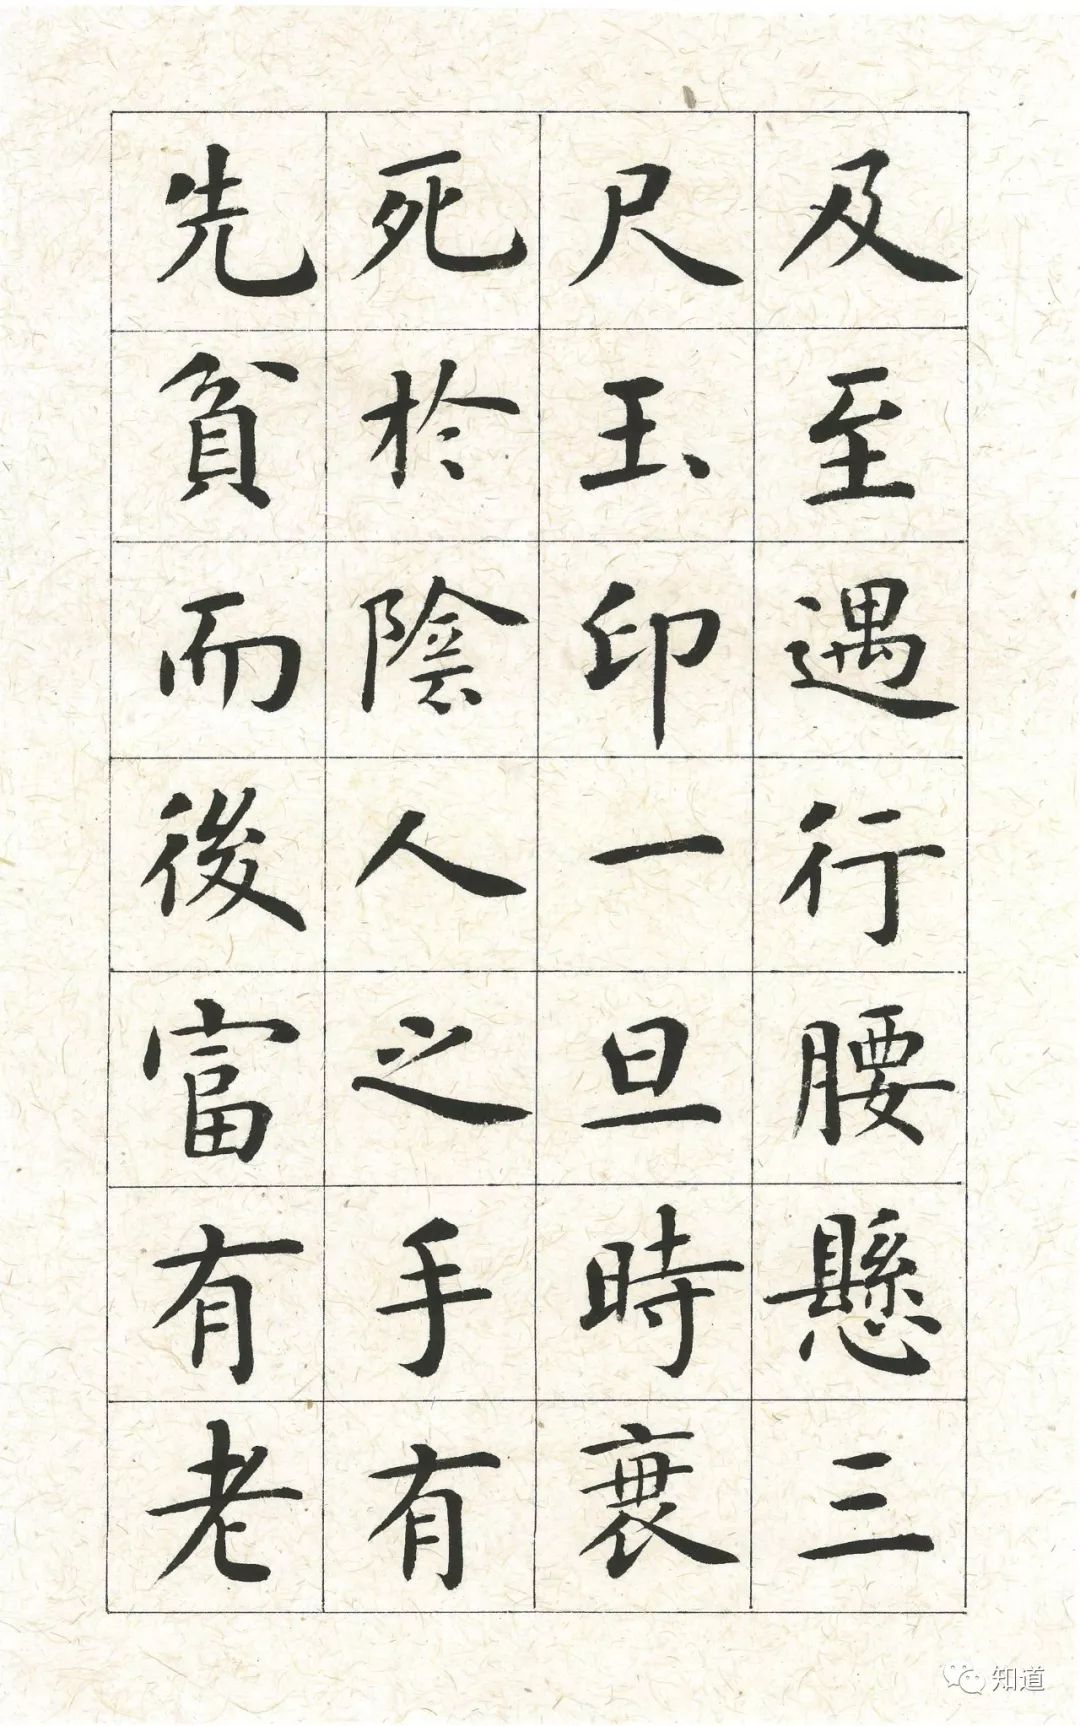 及至遇行腰懸三
尺玉印一旦時衰
死於陰人之手有
先貧而後富有老
知道